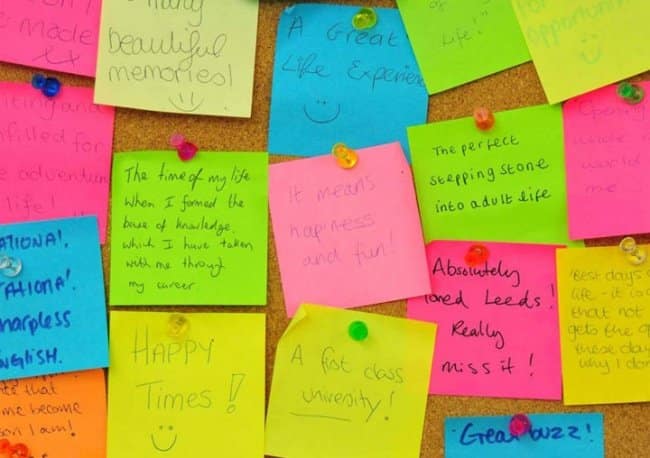 made
many
beautiful
memories!
A Great
Life Experien
of
life!
For
opportun
iting and
filled for
e adventur
life!
The time of my life
when I formed the
base of knowledge
which I have taken
with me through
my career
It means
happiness
and fun!
The perfect
stepping stone
into adult life
whole
world
me
ATIONA!,
ATIONA!
harpless
NGLISH.
HAPPY
Times!
A first class
university!
Absolutely
loved Leeds!
Really
miss it!
Best days
life - it is
that not
gets the
these day
why I don
ts that
me become
son I am!
Great buzz!